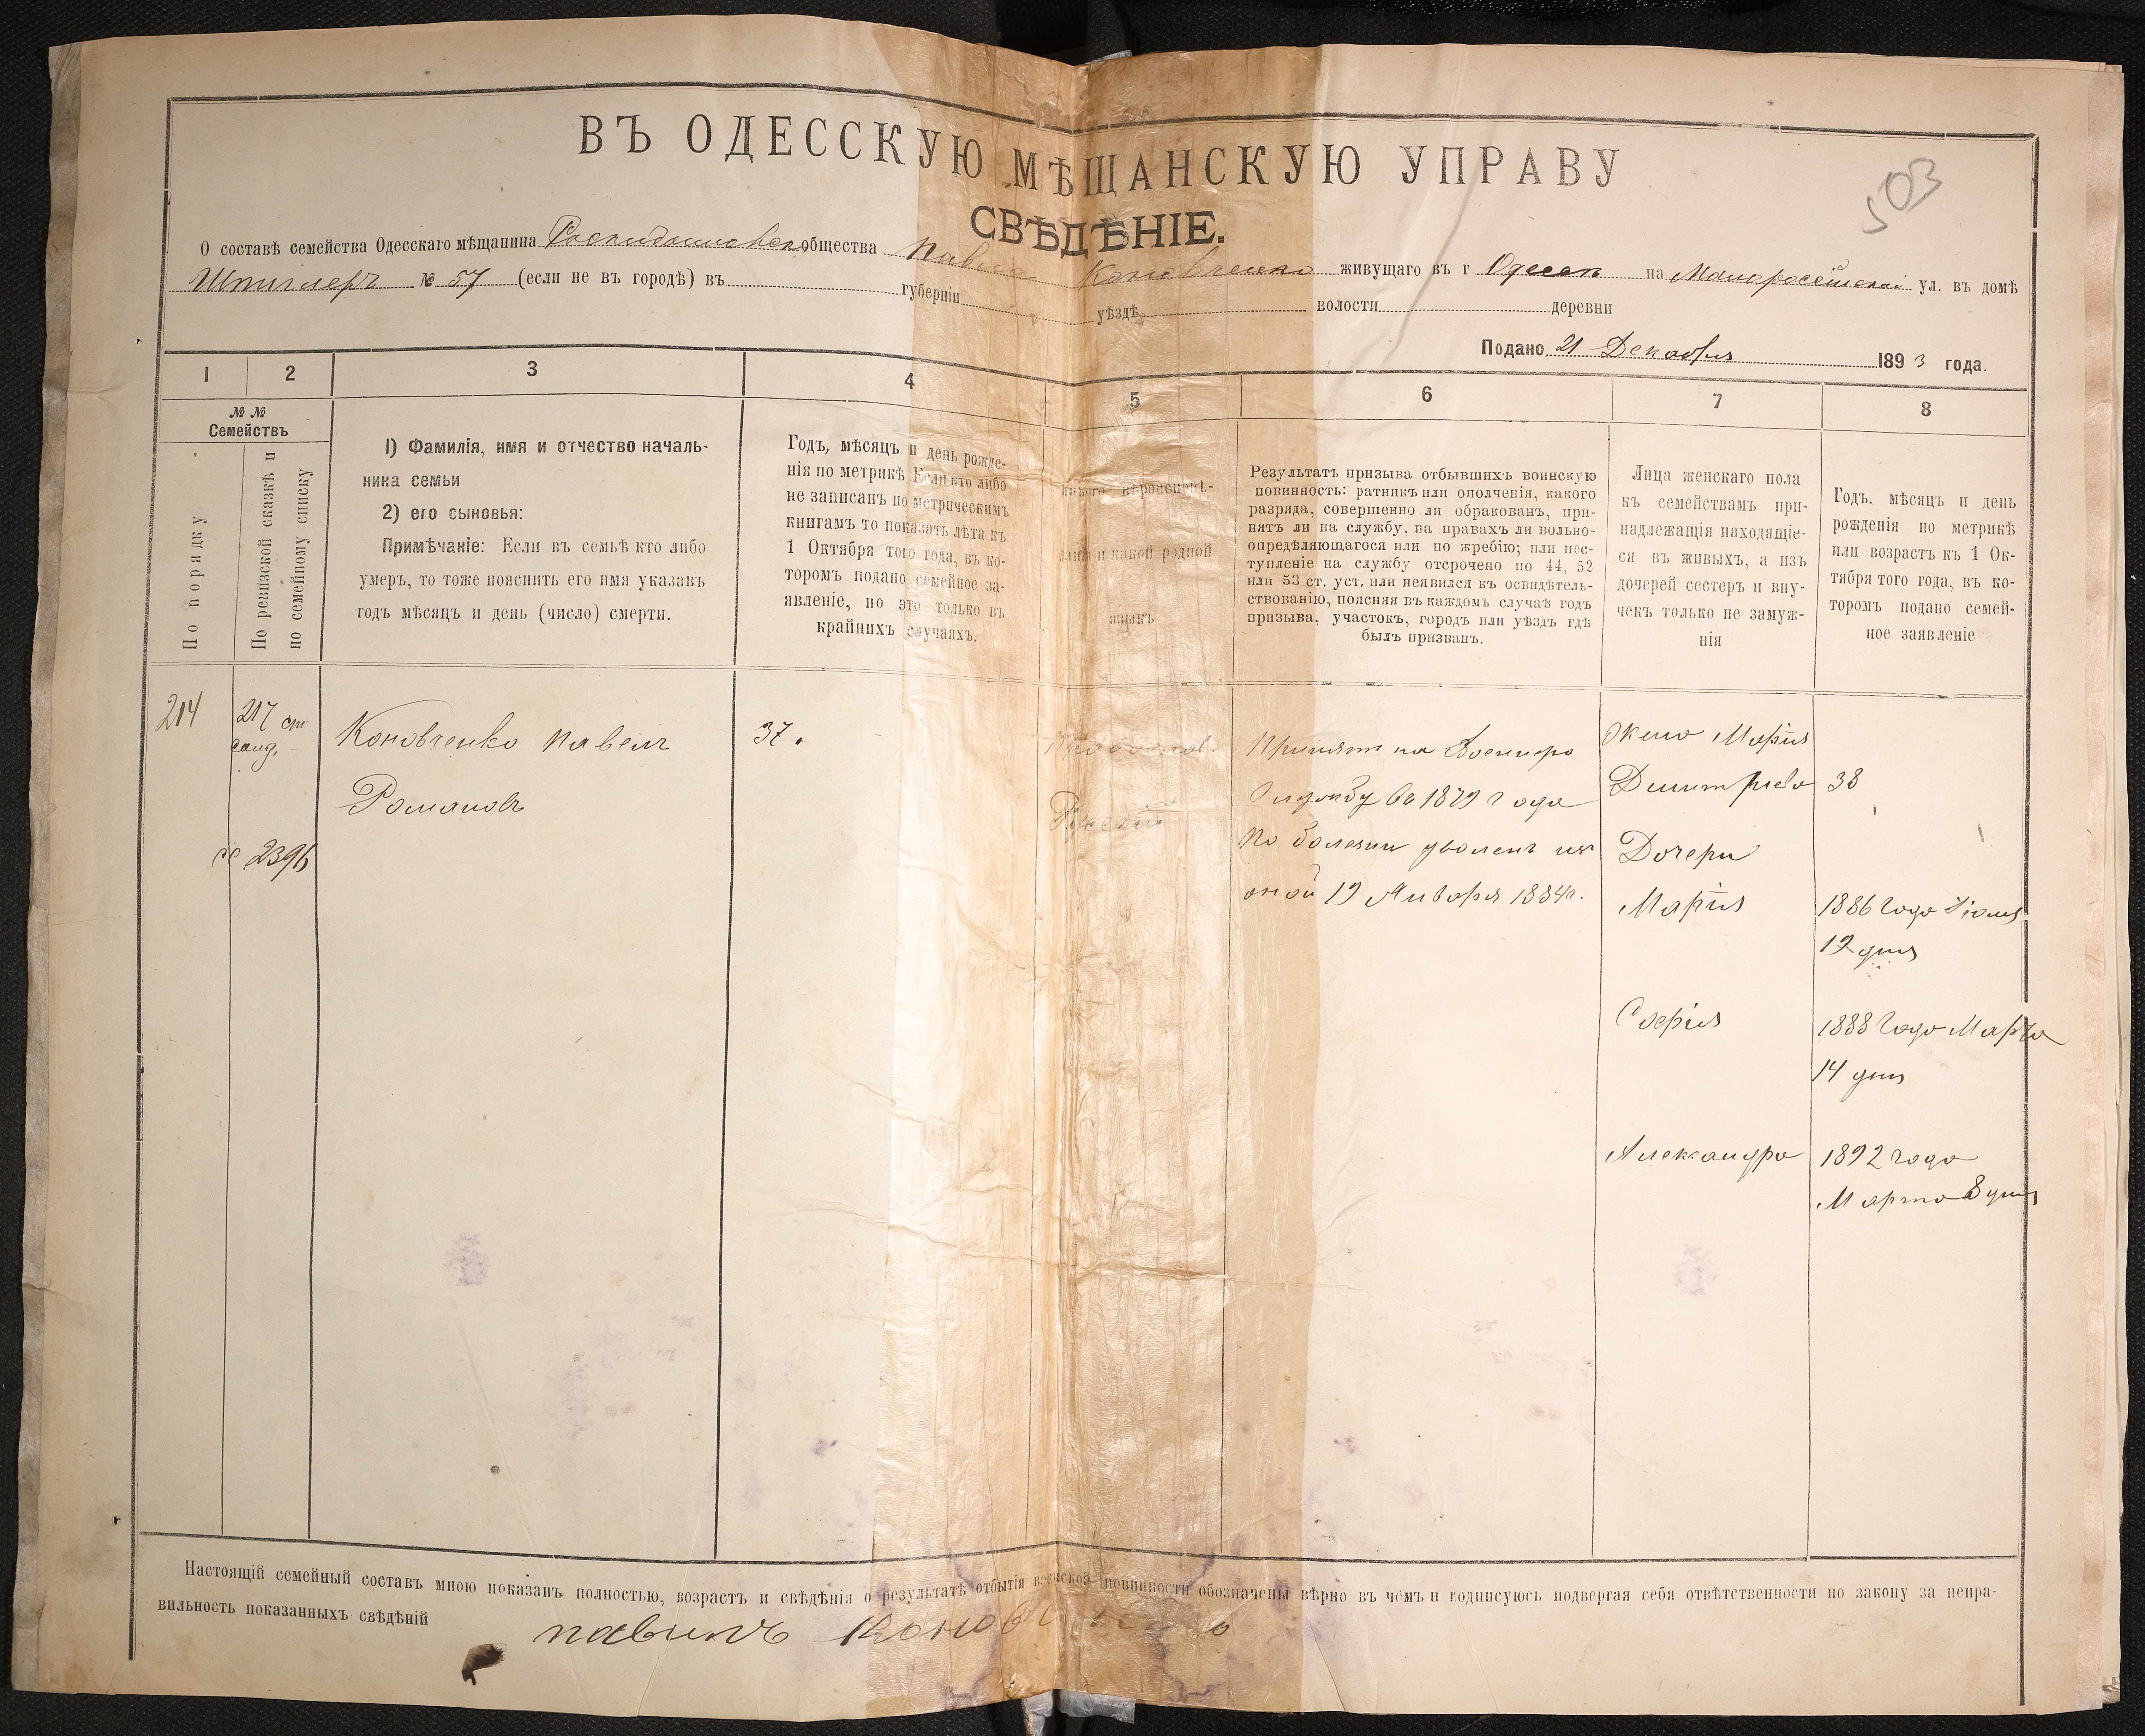 ВЪ ОДЕССКУЮ МѢЩАНСКУЮ УПРАВУ
СВѢДѢНІЕ.
503
О составѣ семейства Одесскаго мѣщанина общества Павла Коновченко живущаго въ г Одессѣ на Малороссійской ул. въ домѣ
Шпиглеръ № 57 (если не въ городѣ) въ губерніи уѣздѣ волости деревни
Подано 21 Декабря 1893 года.
1 2 3 4 5 6 7 8
№ №
Семействъ
По порядку
По ревизской сказкѣ и
по семейному списку
1) Фамилія, имя и отчество началь-
ника семьи
2) его сыновья:
Примѣчаніе: Если въ семьѣ кто либо
умеръ, то тоже пояснить его имя указавъ
годъ мѣсяцъ и день (число) смерти.
Годъ, мѣсяцъ и день рожде-
нія по метрикѣ Если кто либо
не записанъ по метрическимъ
книгамъ то показать лѣта къ
1 Октября того года, въ ко-
торомъ подано семейное за-
явленіе, но это только въ
крайнихъ случаяхъ.
какого вѣроисповѣ-
данія и какой родной
языкъ
Результатъ призыва отбывшихъ воинскую
повинность: ратникъ или ополченія, какого
разряда, совершенно ли обракованъ, при-
нятъ ли на службу, на правахъ ли вольно-
опредѣляющагося или по жребію; или пос-
тупленіе на службу отсрочено по 44, 52
или 53 ст. уст, или неявился къ освидѣтель-
ствованію, поясняя въ каждомъ случаѣ годъ
призыва, участокъ, городъ или уѣздъ гдѣ
былъ призванъ.
Лица женскаго пола
къ семействамъ при-
надлежащія находящіе-
ся въ живыхъ, а изъ
дочерей сестеръ и вну-
чекъ только не замуж-
нія
Годъ, мѣсяцъ и день
рожденія по метрикѣ
или возрастъ къ 1 Ок-
тября того года, въ ко-
торомъ подано семей-
ное заявленіе
214
217
2396
Коновченко Павелъ
Романовъ
37.
Православ.
Русскій
Принятъ на Военную
Службу въ 1879 года
По болезни уволенъ изъ
оной 19 Января 1884г.
Жена Марія
Димитріева 38
Дочери
Марія 1886 года Іюля
19 дня
Софія 1888 года Марта
14 дня
Александра 1892 года
Марта 8 дня
Настоящій семейный составъ мною показанъ полностью, возрастъ и свѣдѣнія о результатѣ отбытія воинской повинности обозначены вѣрно въ чемъ и подписуюсь подвергая себя отвѣтственности по закону за непра-
вильность показанныхъ свѣдѣній